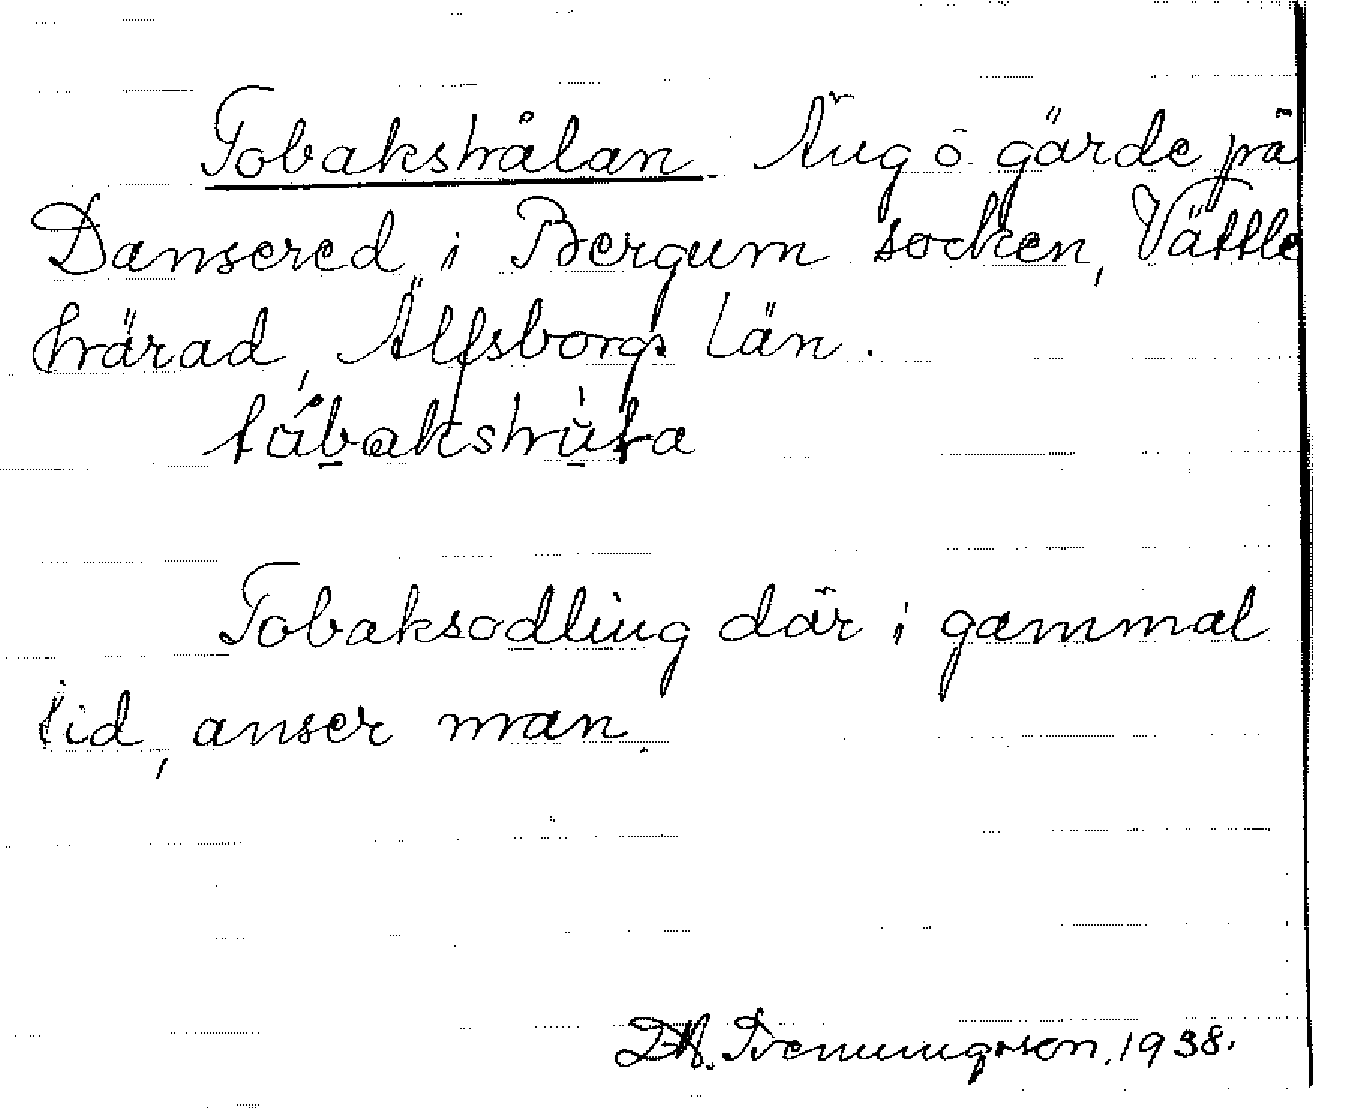 Tobakshålan. Äng o. gärde på
Dansered i Bergum socken, Vättle
härad, Älfsborgs län.
Tobaksodling där i gammal
tid, anser man.
1938.